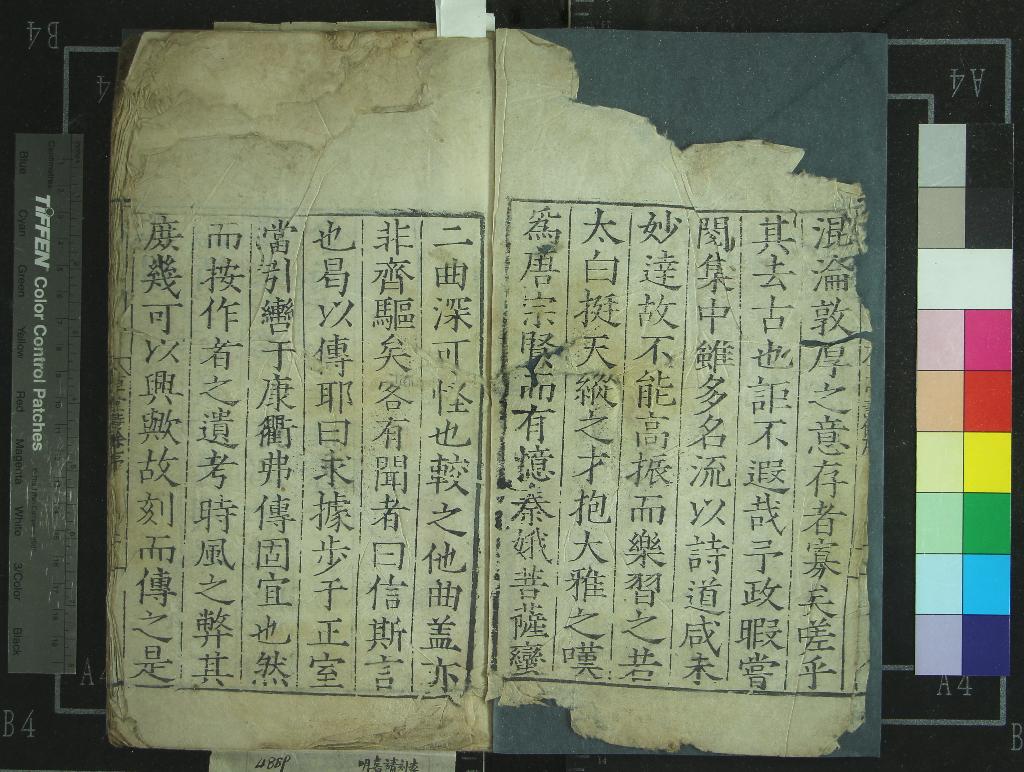 混淪敦厚之意存者寡矣嗟乎
其去古也詎不遐哉予政暇嘗
閱集中雖多名流以詩道咸未
妙達故不能高振而樂習之若
太白挺天縱之才抱大雅之嘆
為唐宗賢而有憶秦娥菩薩蠻
二曲深可怪也較之他曲盖亦
非齊驅矣客有聞者曰信斯言
也曷以傳耶曰求據步于正室
當引轡于康衢弗傳固宜也然
而按作者之遺考時風之弊其
庻幾可以興歟故刻而傳之是
TIFFEN Color Control Patches
Blue Cyan Green Yellow Red Magenta White 3/Color Black
Centimetres
B4
A4
A4
A4
B4